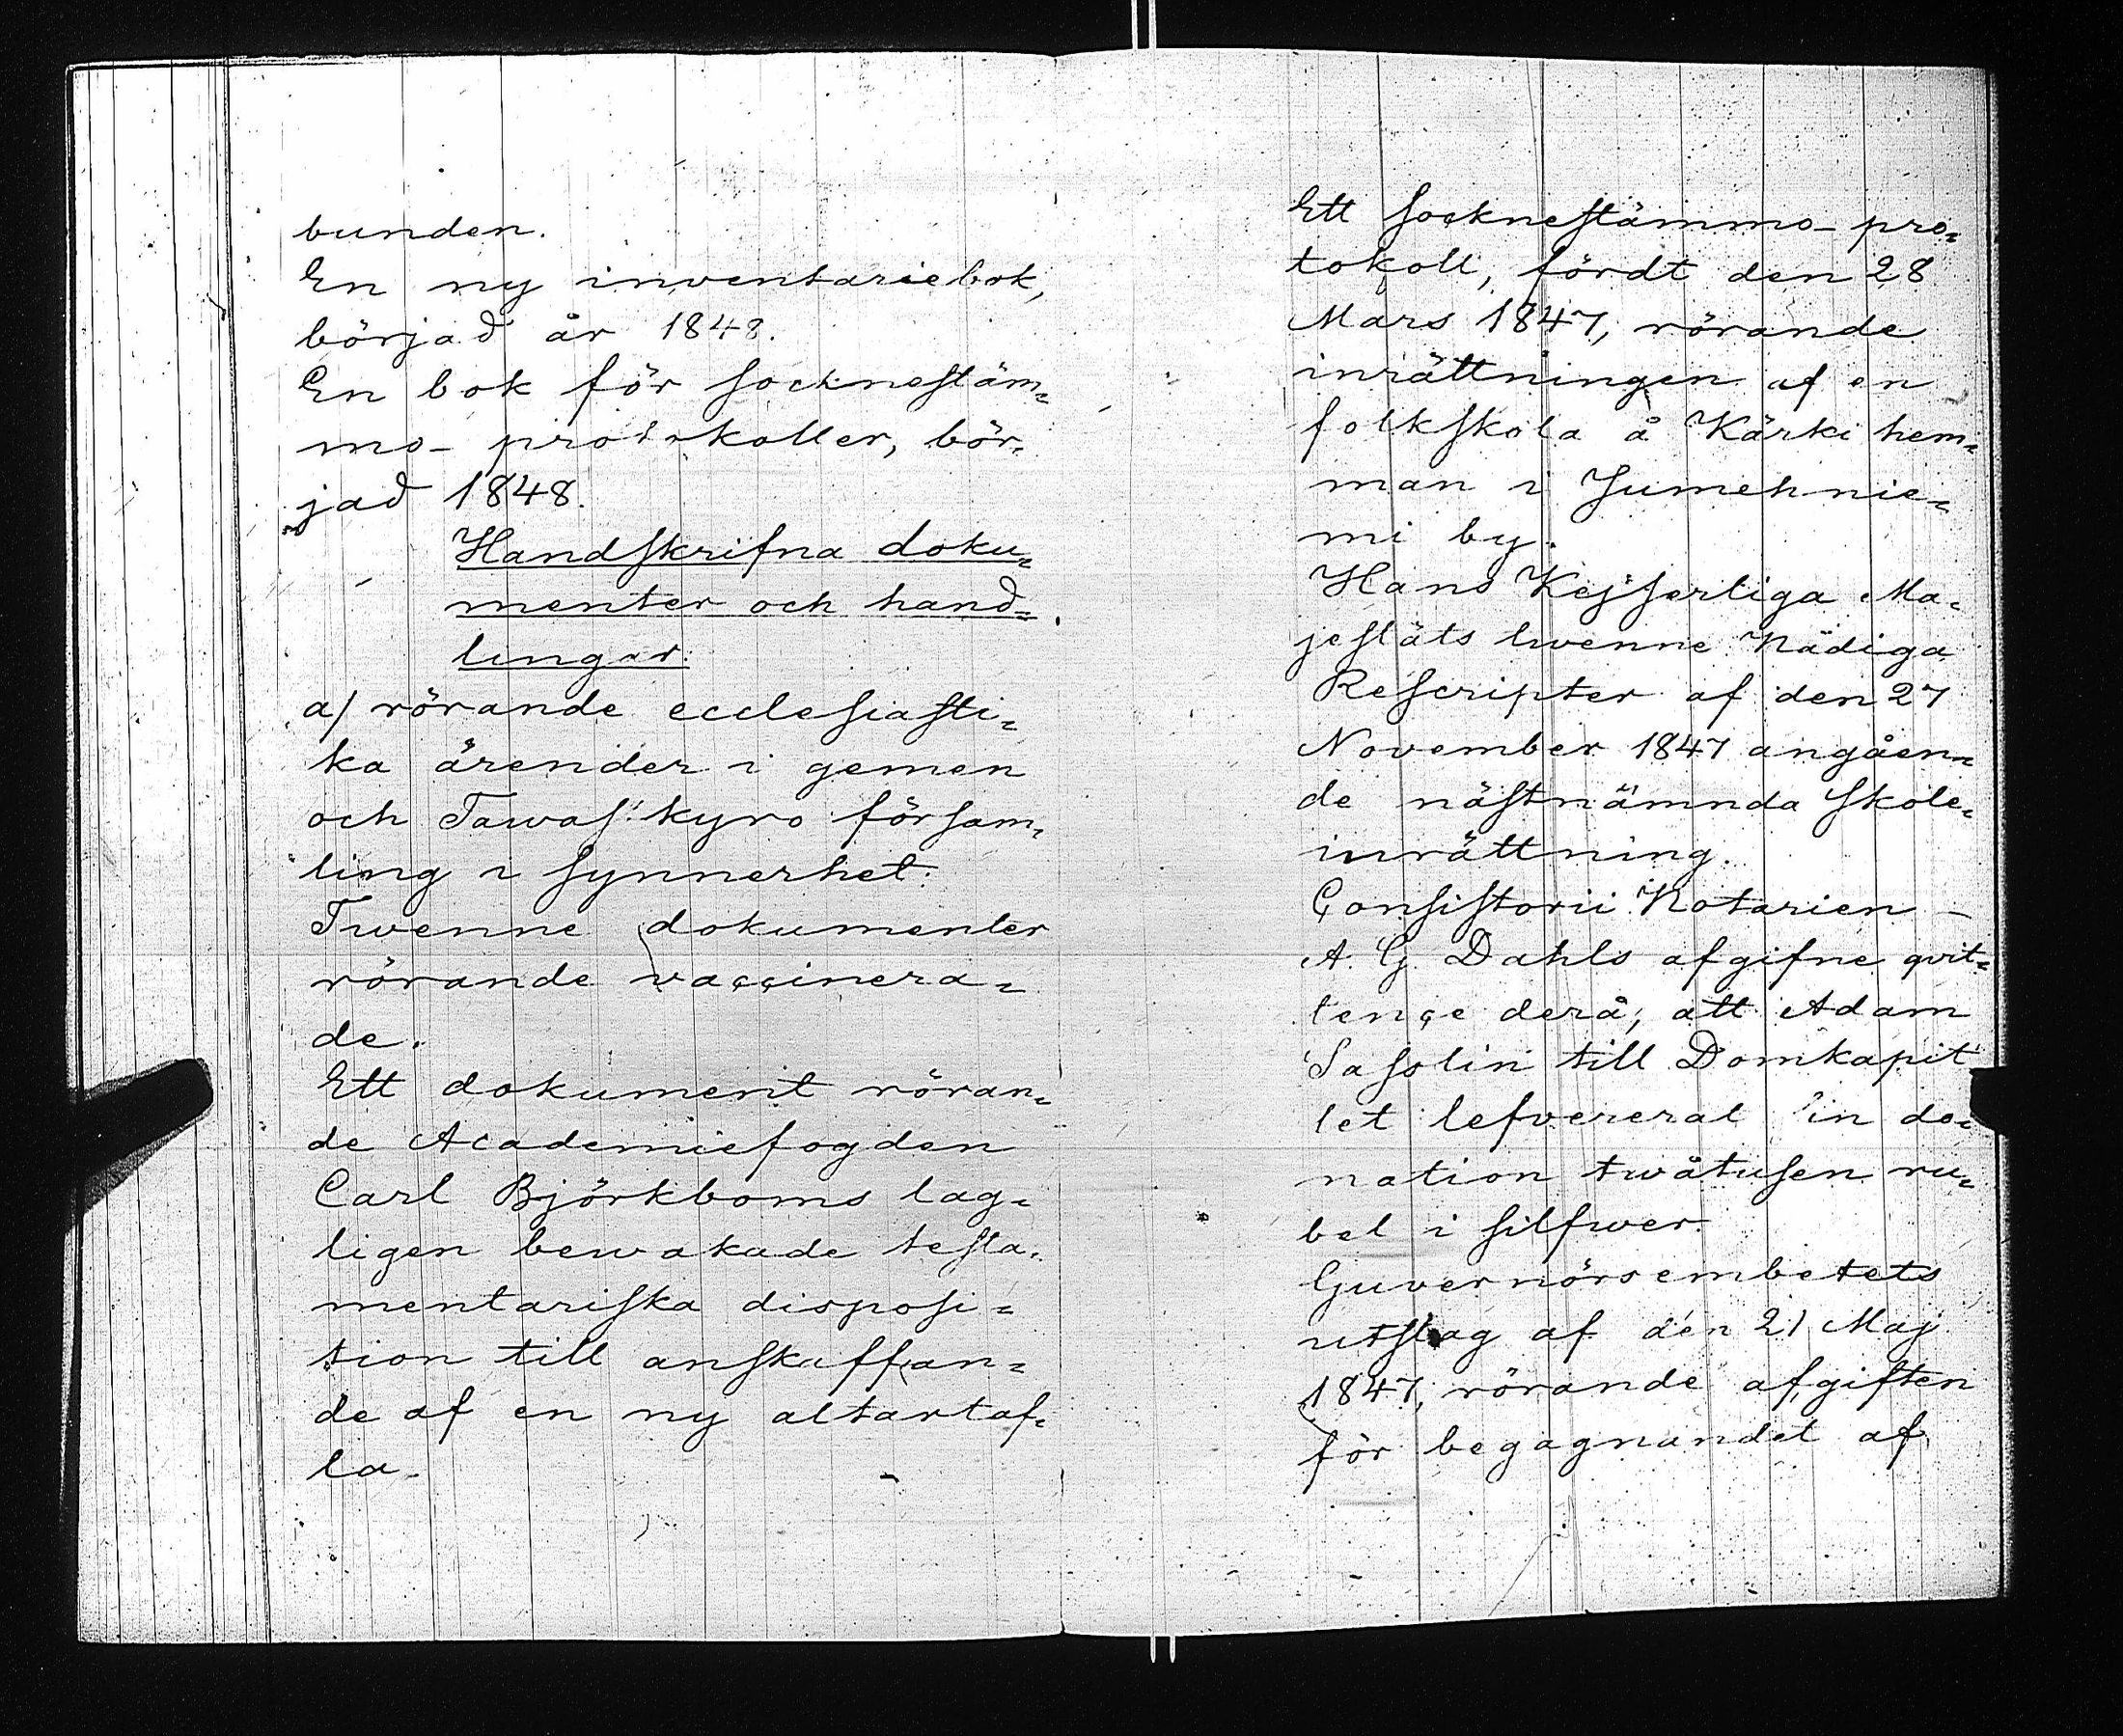 bunden.
En ny inventariebok,
börjad år 1848.
En bok för socknestäm=
mo- protokoller, bör=
jad 1848.
Handskrifna doku=
menter och hand=
lingar.
a/ rörande ecclesiasti=
ka ärender i gemen
och Tawast kyro försam=
ling i synnerhet.
Twenne dokumenter
rörande vaccinera=
de.
Ett dokument röran=
de Academiefogden
Carl Björkboms lag=
ligen bewakade testa=
mentariska disposi=
tion till anskaffan=
de af en ny altartaf=
la.
Ett socknestämmo- pro=
tokoll, fördt den 28
Mars 1847, rörande
inrättningen af en
folkskola å Kärki hem=
man i Jumehnie=
mi by.
Hans Kejserliga Ma=
jestäts twenne Nådiga
Rescripter af den 27
November 1847 angåen=
de nästnämnda skole=
inrättning.
Consistorii Notarien -
A. G. Dahls afgifne qvit=
tence derå, att Adam
till Domkapit
let lefvererat in do=
nation twåtusen ru=
bel i silfwer.
Guvernörsembetets
utslag af den 21 Maj
1847, rörande afgiften
för begagnandet af